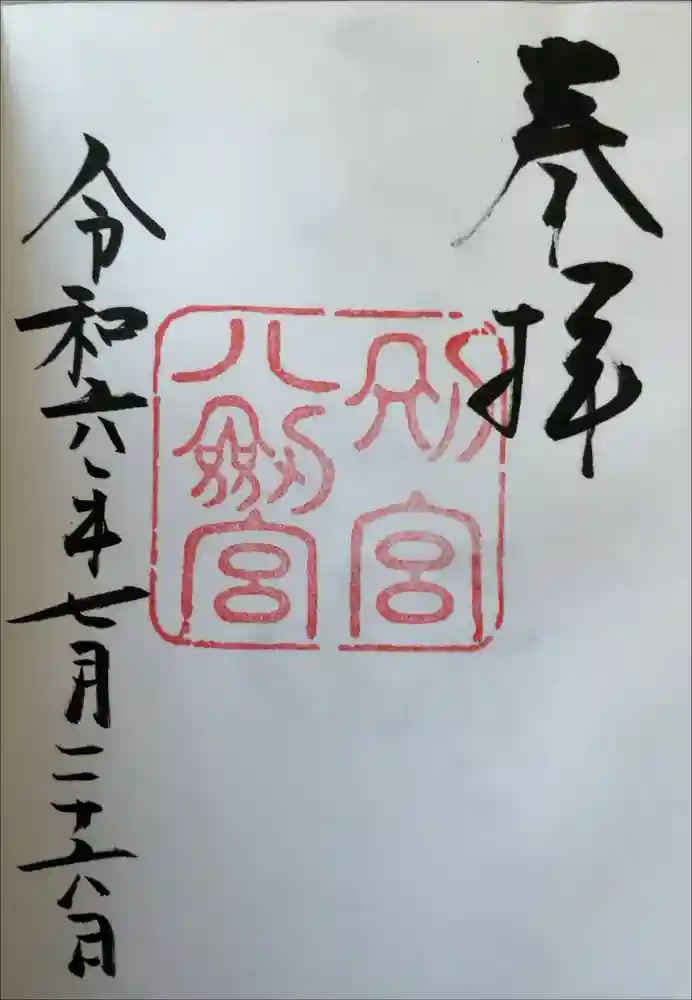 奉拝
別宮
八剱宮
令和六年七月二十六日